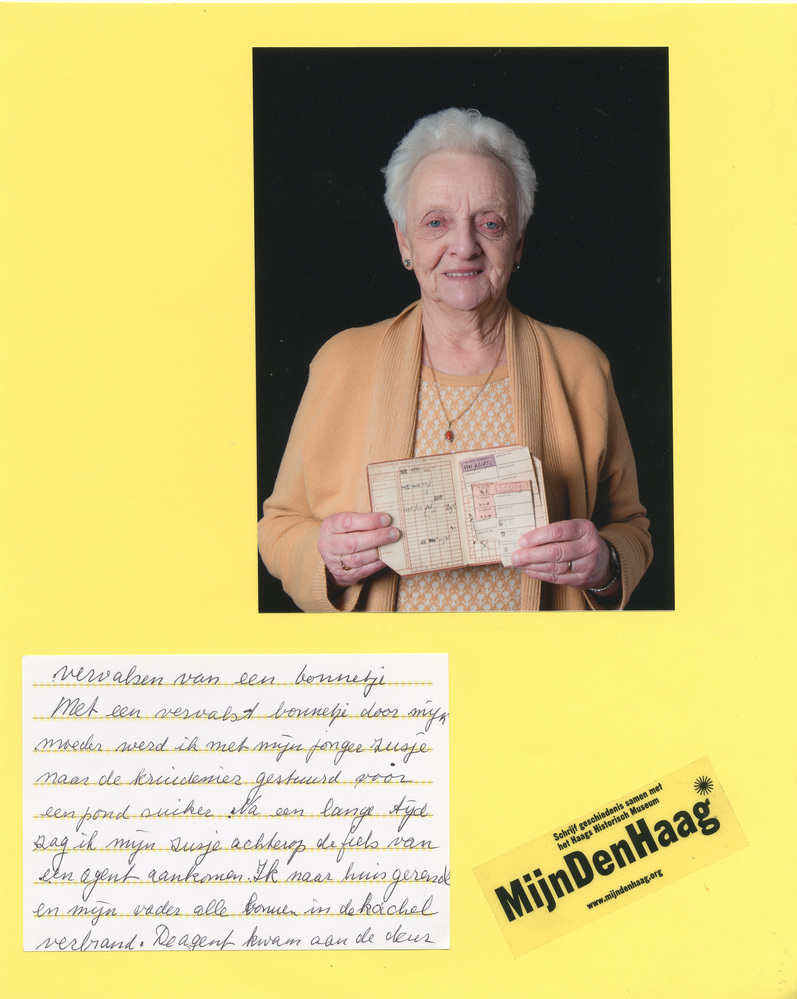 vervalsen van een bonnetje
Met een vervalst bonnetje door mijn
moeder werd ik met mijn jonger zusje
naar de kruidenier gestuurd voor
een pond suiker. Na een lange tijd
zag ik mijn zusje achterop de fiets van
een agent aankomen. Ik naar huis gerend
en mijn vader alle bonnen in de kachel
verbrand. De agent kwam aan de deur
Schrijf geschiedenis samen met
het Haags Historisch Museum
MijnDenHaag
www.mijndenhaag.org